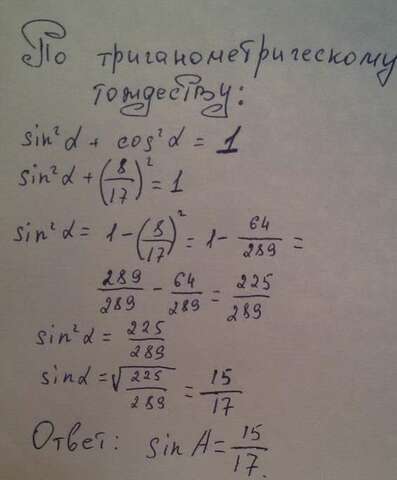 По триганометрическому
тождеству:
sin²α + cos²α = 1
sin²α + (8/17)² = 1
sin²α = 1 - (8/17)² = 1 - 64/289 =
289/289 - 64/289 = 225/289
sin²α = 225/289
sinα = √(225/289) = 15/17
Ответ: sin A = 15/17.